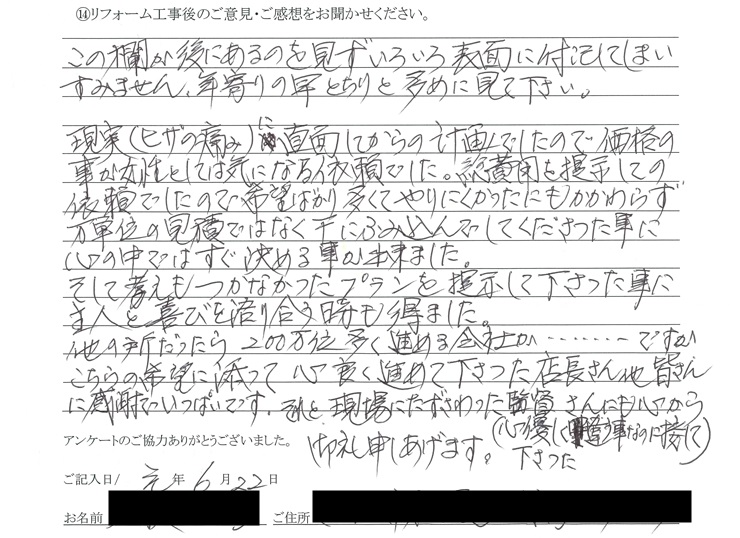 ⑭リフォーム工事後のご意見・ご感想をお聞かせください。
この欄が後にあるのを見ずいろいろ表面に付記してしまい
すみません、年寄りの早とちりと多めに見て下さい。
現実(ヒザの痛み)に直面してからの計画でしたので価格の
事が女性としては気になる依頼でした。総費用を提示しての
依頼でしたので希望ばかり多くてやりにくかったにもかかわらず
万単位の見積ではなく千にふみ込んでしてくださった事に
心の中ではすぐ決める事が出来ました。
そして考えもつかなかったプランを提示して下さった事に
主人と喜びを語り合う時も得ました。
他の所だったら200万位多く進める会社が………ですが
こちらの希望に添って心良く進めて下さった店長さん他皆さん
に感謝でいっぱいです。それと現場にたずさわった監督さんにも心から
(心優しく事なのに接して)
アンケートのご協力ありがとうございました。
御礼申しあげます。下さった
ご記入日/元年6月22日
お名前
ご住所